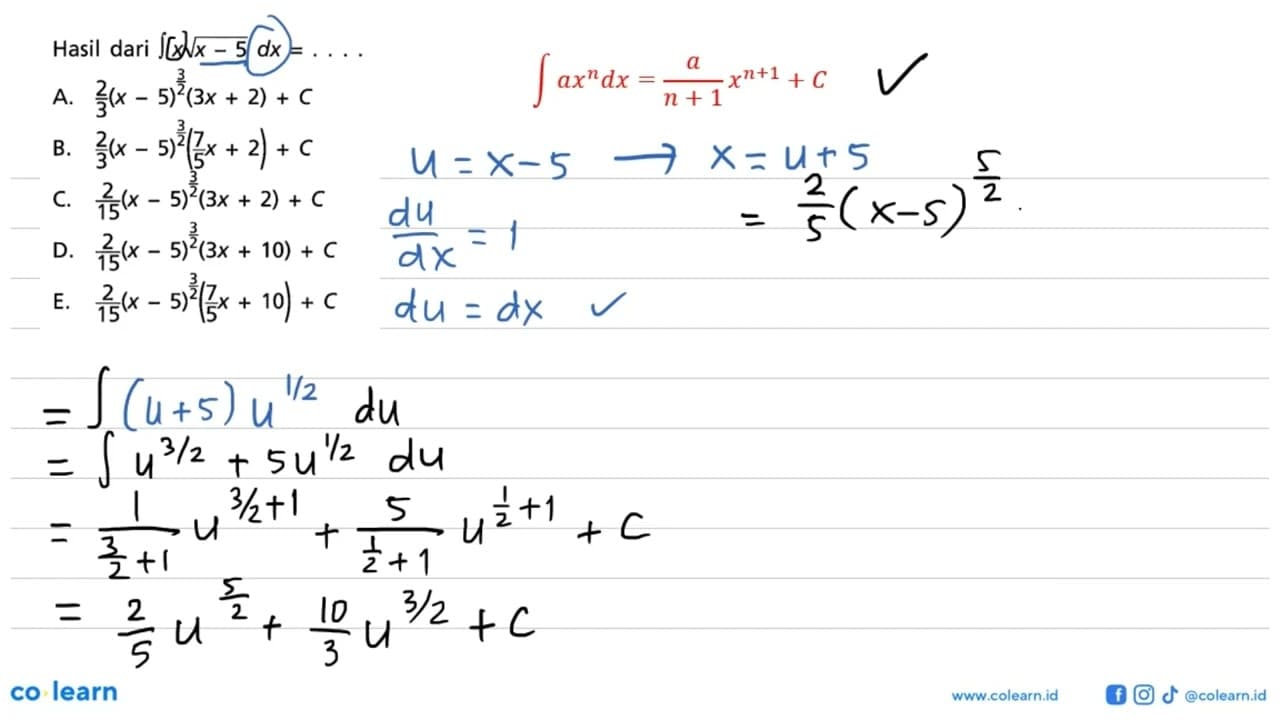 Hasil dari ∫x√x – 5 dx = . . . .
A. 2/3(x – 5)^3/2(3x + 2) + C
B. 2/3(x – 5)^3/2(7/5x + 2) + C
C. 2/15(x – 5)^3/2(3x + 2) + C
D. 2/15(x – 5)^3/2(3x + 10) + C
E. 2/15(x – 5)^3/2(7/5x + 10) + C
∫ax^n dx = a/(n + 1) x^(n+1) + C ✓
u = x – 5 → x = u + 5
= 2/5 (x – 5)^5/2
du/dx = 1
du = dx ✓
= ∫ (u + 5) u^1/2 du
= ∫ u^3/2 + 5u^1/2 du
= 1/(3/2 + 1) u^(3/2 + 1) + 5/(1/2 + 1) u^(1/2 + 1) + C
= 2/5 u^5/2 + 10/3 u^3/2 + C
co·learn
www.colearn.id
@colearn.id